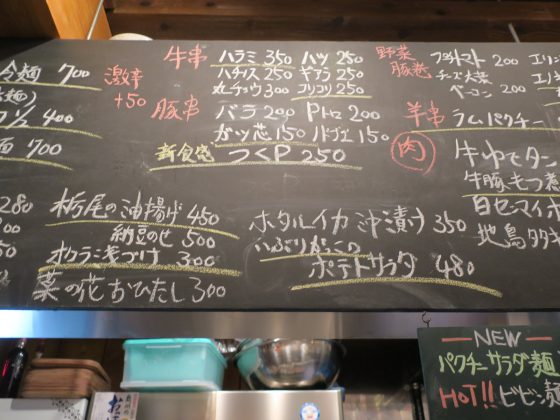 冷麺 700
激辛
+50
麺)
1/2 400
麺 700
牛串 ハラミ 350 ハツ 250
ハチノス 250 ギアラ 250
丸チョウ 300 コリコリ 250
豚串 バラ 200 Pトロ 200
ガツ芯 150 ノドブエ 150
新食感 つくP 250
野菜
豚巻 プチトマト 200
チーズ大葉
ベーコン 200
羊串 ラムパクチー
肉 牛ゆでタン
牛豚もつ煮
280
栃尾の油揚げ 450
納豆のせ 500
オクラ浅づけ 300
菜の花おひたし 300
ホタルイカ沖漬け 350
いぶりがっこの
ポテトサラダ 480
自セマイカ
地鳥タタキ
NEW
パクチーサラダ麺
HOT!! ビビン麺